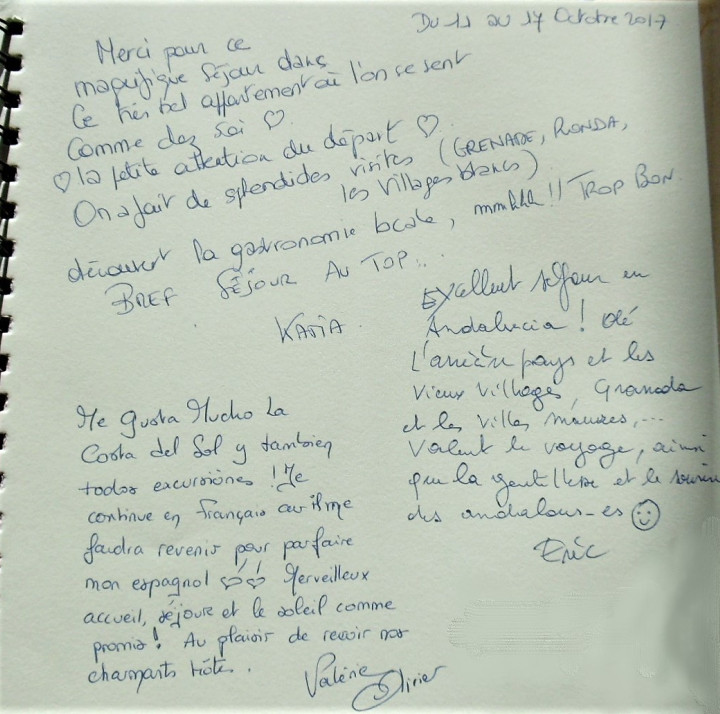 Du 11 au 17 Octobre 2017
Merci pour ce
magnifique séjour dans
ce très bel appartement où l'on se sent
comme chez soi ♡
♡ la petite attention du départ ♡.
On a fait de splendides visites (GRENADE, RONDA,
les villages blancs)
découvert la gastronomie locale, mmhhh!! TROP BON.
BREF SÉJOUR AU TOP...
KATIA.
Excellent séjour en
Andalucia ! Olé
L'arrière pays et les
vieux villages, Granada
et les villes maures,...
valent le voyage, ainsi
que la gentillesse et le sourire
des andalous-es ☺
Eric
Me Gusta Mucho La
Costa del Sol y tambien
todos excursiones ! Je
continue en français car il me
faudra revenir pour parfaire
mon espagnol ♡♡ Merveilleux
accueil, séjour et le soleil comme
promis ! Au plaisir de revoir nos
charmants hôtes.
Valérie
Olivier